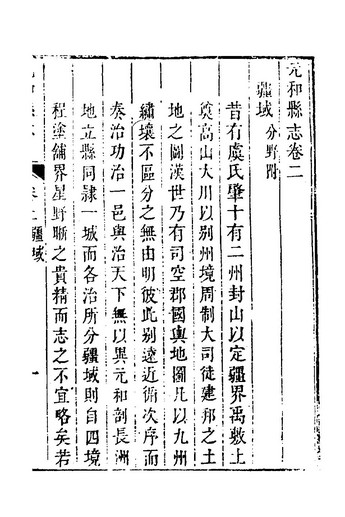 元和縣志卷二
疆域 分野附
昔有虞氏肇十有二州封山以定疆界禹敷土
奠高山大川以别州境周制大司徒建邦之土
地之圖漢世乃有司空郡國輿地圖凡以九州
繡壤不區分之無由明彼此别遠近循次序而
奏治功治一邑與治天下無以異元和剖長洲
地立縣同隷一城而各治所分疆域則自四境
程塗舖界星野晰之貴精而志之不宜略矣若
卷二 疆域 一